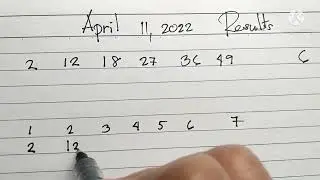 April 11, 2022 Results
2 12 18 27 36 49 6
1 2 3 4 5 6 7
2 12